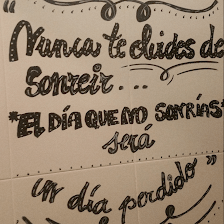 "Nunca te olvides de
sonreir...
*EL DÍA QUE NO SONRÍAS*
será
un día perdido"